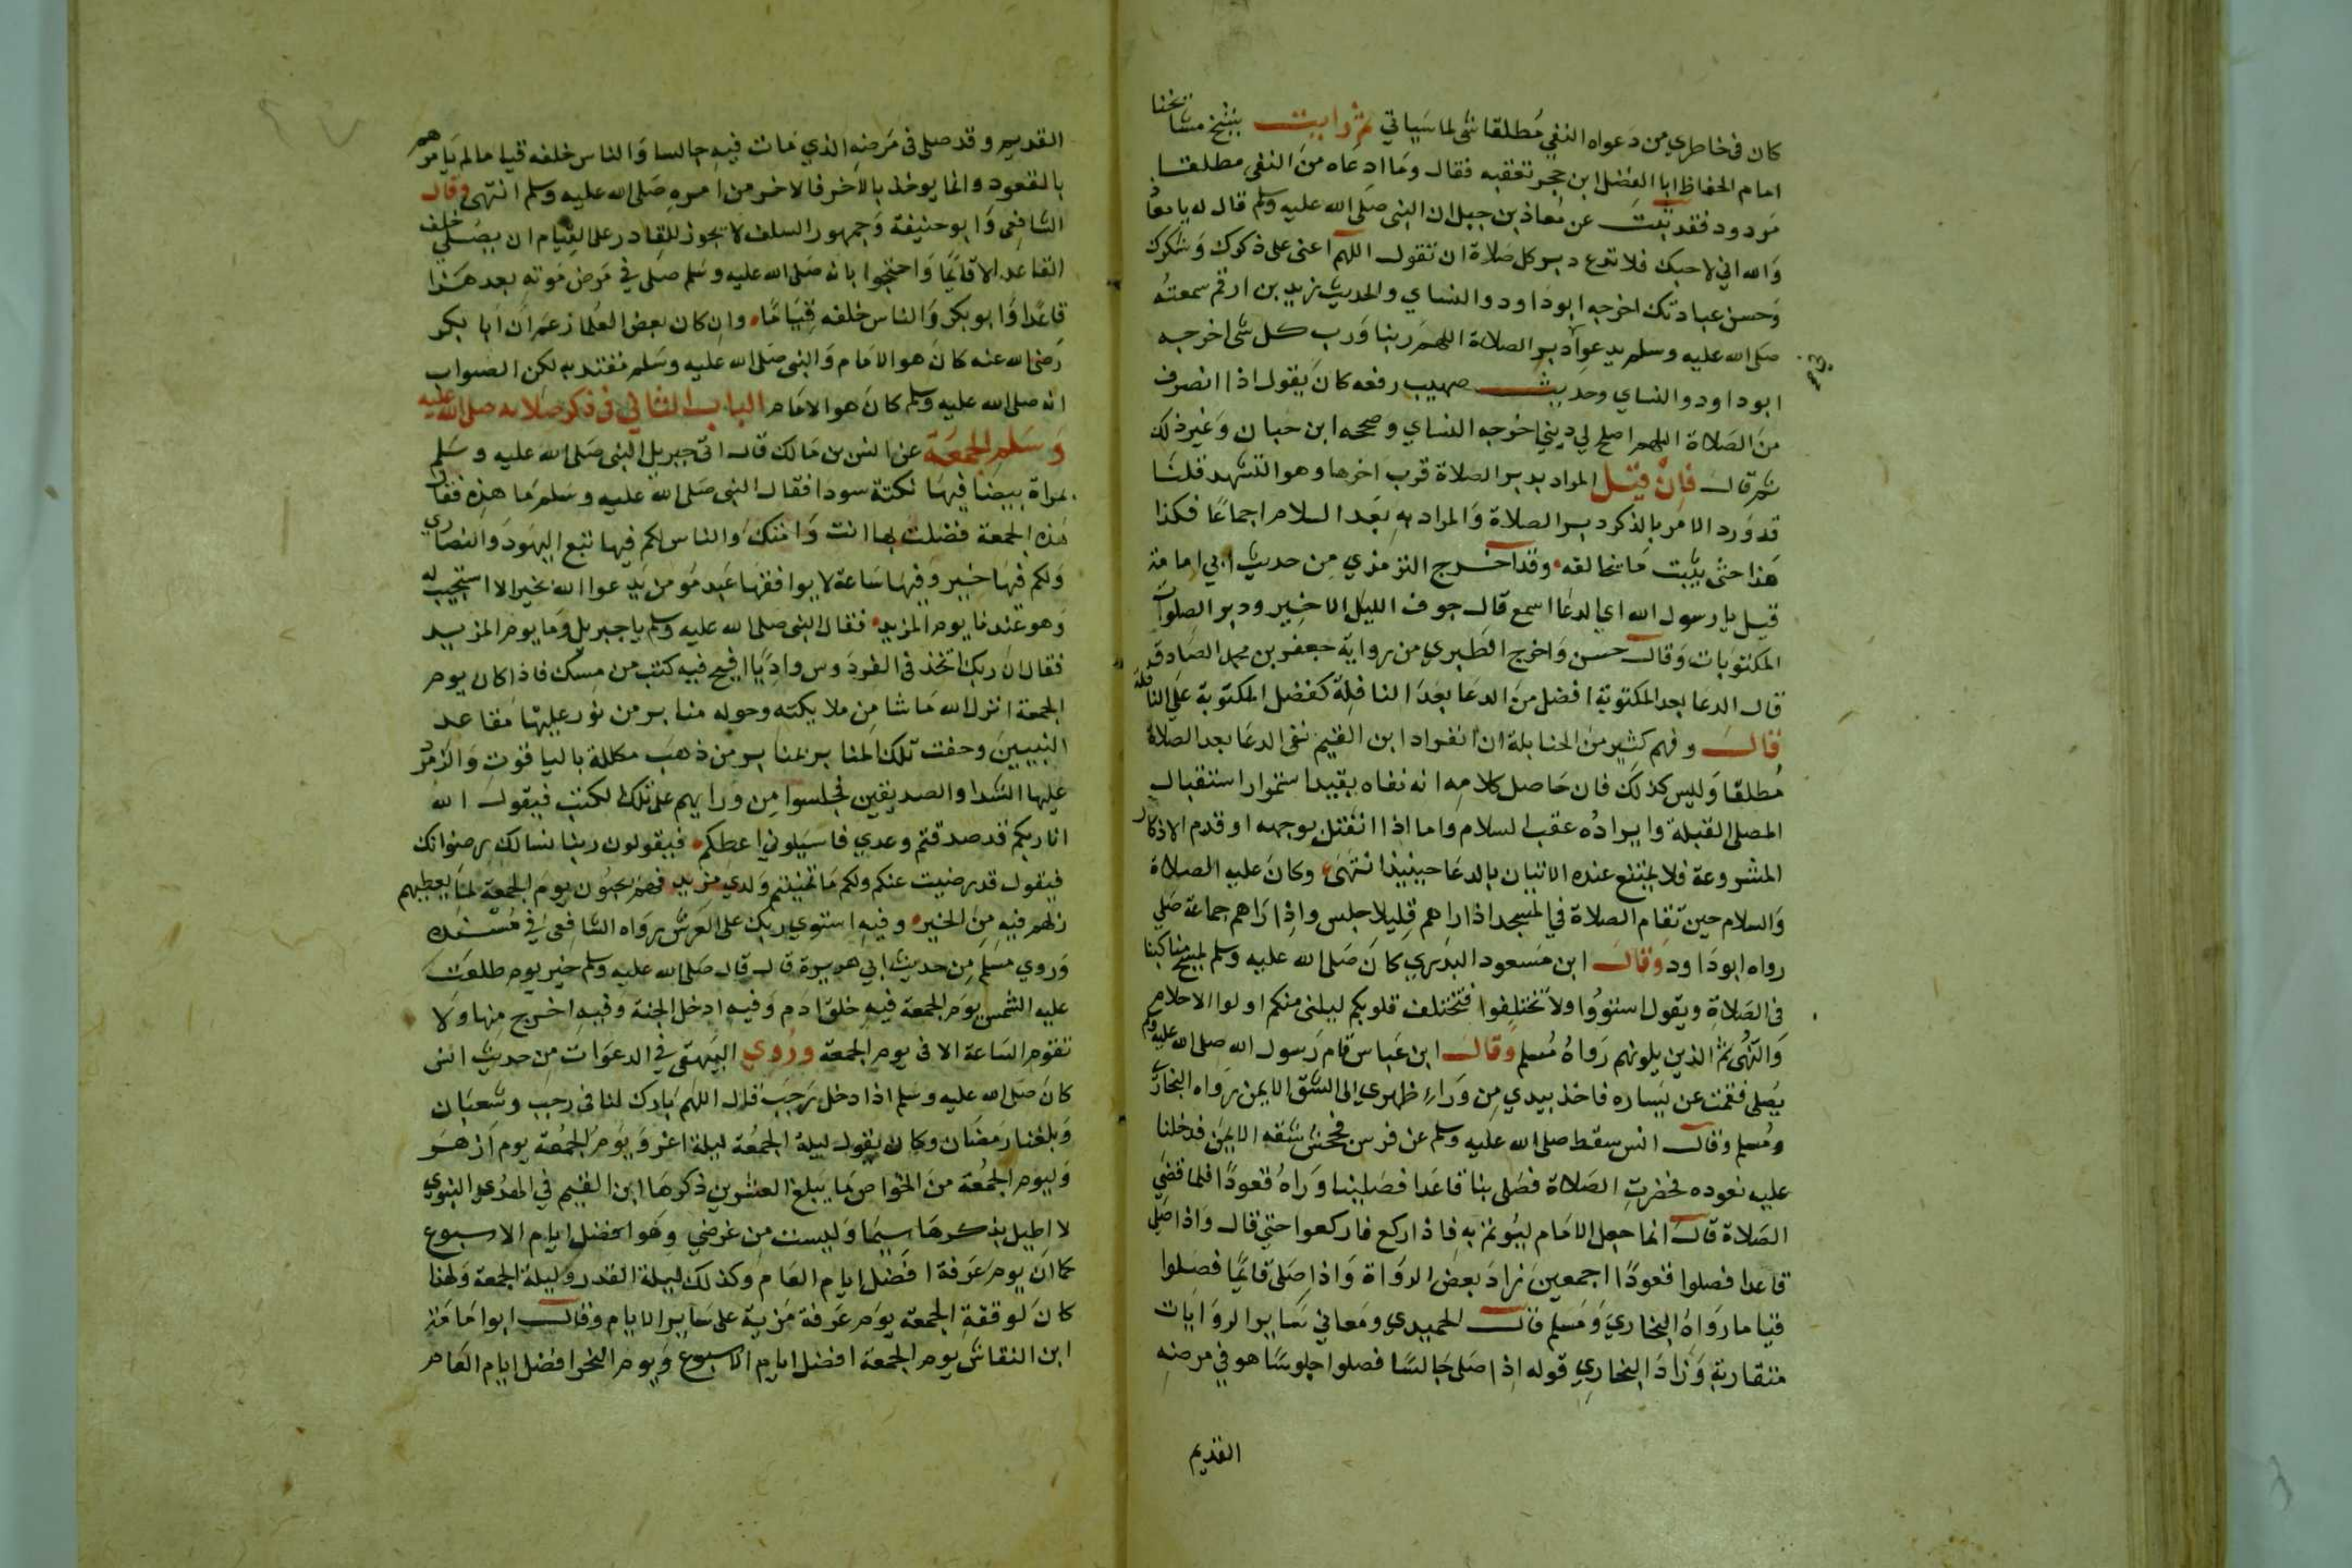 كان في خاطري من دعواه النفي مطلقا شي لما سياتي ثم رايت بشيخ مشايخنا
امام الحفاظ ابا الفضل ابن حجر تعقبه فقال وما ادعاه من النفي مطلقا
مردود فقد ثبت عن معاذ بن جبل ان النبي صلى الله عليه وسلم قال له يا معاذ
والله اني لاحبك فلا تدع دبر كل صلاة ان تقول اللهم اعني على ذكرك وشكرك
وحسن عبادتك اخرجه ابو داود والنساي والحديث زيد بن ارقم سمعته
صلى الله عليه وسلم يدعوا دبر الصلاة اللهم ربنا ورب كل شي اخرجه
ابو داود والنساي وحديث صهيب رفعه كان يقول اذا انصرف
من الصلاة اللهم اصلح لي ديني اخرجه النساي وصححه ابن حبان وغير ذلك
ثم قال فان قيل المراد بدبر الصلاة قرب اخرها وهو التشهد قلنا
قد ورد الامر بالذكر دبر الصلاة والمراد به بعد السلام اجماعا فكذا
هذا حتى يثبت ما يخالفه وقد اخرج الترمذي من حديث ابي امامة
قيل يا رسول الله اي الدعا اسمع قال جوف الليل الاخير ودبر الصلوات
المكتوبات وقال حسن واخرج الطبري من رواية جعفر بن محمد الصادق
قال الدعا بعد المكتوبة افضل من الدعا بعد النافلة كفضل المكتوبة على النافلة
قال وفهم كثير من الحنابلة ان انفراد ابن القيم نفى الدعا بعد الصلاة
مطلقا وليس كذلك فان حاصل كلامه انه نفاه بقيد استمرار استقبال
المصلى القبلة وايراده عقب السلام واما اذا انفتل بوجهه او قدم الاذكار
المشروعة فلا يمتنع عنده الاتيان بالدعا حينيذ انتهى وكان عليه الصلاة
والسلام حين تقام الصلاة في المسجد اذا راهم قليلا جلس واذا راهم جماعة صلي
رواه ابو داود وقال ابن مسعود البدري كان صلى الله عليه وسلم يمسح مناكبنا
في الصلاة ويقول استووا ولا تختلفوا فتختلف قلوبكم ليلني منكم اولوا الاحلام
والنهى ثم الذين يلونهم رواه مسلم وقال ابن عباس قام رسول الله صلى الله عليه وسلم
يصلى فقمت عن يساره فاخذ بيدي من وراء ظهري الى الشق الايمن رواه البخاري
ومسلم وقال انس سقط صلى الله عليه وسلم عن فرس فجحش شقه الايمن فدخلنا
عليه نعوده فحضرت الصلاة فصلى بنا قاعدا فصلينا وراه قعودا فلما قضي
الصلاة قال انما جعل الامام ليوتم به فاذا ركع فاركعوا حتي قال واذا صلى
قاعدا فصلوا قعودا اجمعين زاد بعض الرواة واذا صلى قايما فصلوا
قياما رواه البخاري ومسلم قال الحميدي ومعاني ساير الروايات
متقاربة وزاد البخاري قوله اذا صلى جالسا فصلوا جلوسا هو في مرضه
القديم
القديم وقد صلى في مرضه الذي مات فيه جالسا والناس خلفه قياما لم يامرهم
بالقعود وانما يوخذ بالاخر فالاخر من امره صلى الله عليه وسلم انتهى وقال
الشافعي وابو حنيفة وجمهور السلف لا يجوز للقادر على القيام ان يصلي خلف
القاعد الا قايما واحتجوا بانه صلى الله عليه وسلم صلى في مرض موته بعد هذا
قاعدا وابو بكر والناس خلفه قياما وان كان بعض العلما زعم ان ابا بكر
رضي الله عنه كان هو الامام والنبي صلى الله عليه وسلم مقتد به لكن الصواب
انه صلى الله عليه وسلم كان هو الامام الباب الثاني في ذكر صلاته صلى الله عليه
وسلم الجمعة عن انس بن مالك قال اتى جبريل النبي صلى الله عليه وسلم
بمراة بيضا فيها نكتة سودا فقال النبي صلى الله عليه وسلم ما هذه فقال
هذه الجمعة فضلت بها انت وامتك والناس لكم فيها تبع اليهود والنصاري
ولكم فيها خير وفيها ساعة لا يوافقها عبد مومن يدعوا الله بخير الا استجيب له
وهو عندنا يوم المزيد فقال النبي صلى الله عليه وسلم يا جبريل وما يوم المزيد
فقال ان ربك اتخذ في الفردوس واديا افيح فيه كثب من مسك فاذا كان يوم
الجمعة انزل الله ما شا من ملايكته وحوله منابر من نور عليها مقاعد
النبيين وحفت تلك المنابر بمنابر من ذهب مكللة بالياقوت والزمرد
عليها الشهدا والصديقين فجلسوا من ورايهم على تلك الكثب فيقول الله
انا ربكم قد صدقتم وعدي فاسيلوني اعطكم فيقولون ربنا نسالك رضوانك
فيقول قد رضيت عنكم ولكم ما تمنيتم ولدي مزيد فهم يحبون يوم الجمعة لما يعطيهم
ربهم فيه من الخير وفيه استوي ربك على العرش رواه الشافعي في مسنده
وروي مسلم من حديث ابي هريرة قال قال صلى الله عليه وسلم خير يوم طلعت
عليه الشمس يوم الجمعة فيه خلق ادم وفيه ادخل الجنة وفيه اخرج منها ولا
تقوم الساعة الا في يوم الجمعة وروي البيهقي في الدعوات من حديث انس
كان صلى الله عليه وسلم اذا دخل رجب قال اللهم بارك لنا في رجب وشعبان
وبلغنا رمضان وكان يقول ليلة الجمعة ليلة اغر ويوم الجمعة يوم ازهر
وليوم الجمعة من الخواص ما يبلغ العشرين ذكرها ابن القيم في الهدي النبوي
لا اطيل بذكرها سيما وليست من غرضي وهو افضل ايام الاسبوع
كما ان يوم عرفة افضل ايام العام وكذلك ليلة القدر وليلة الجمعة ولهذا
كان لوقفة الجمعة يوم عرفة مزية على ساير الايام وقال ابو امامة
ابن النقاش يوم الجمعة افضل ايام الاسبوع ويوم النحر افضل ايام العام